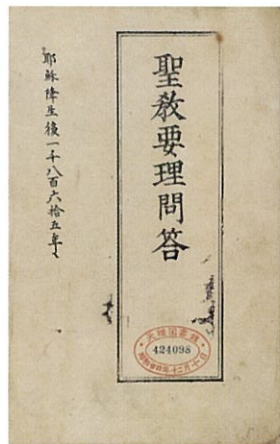 聖教要理問答
耶穌降生後一千八百六拾五年
424098